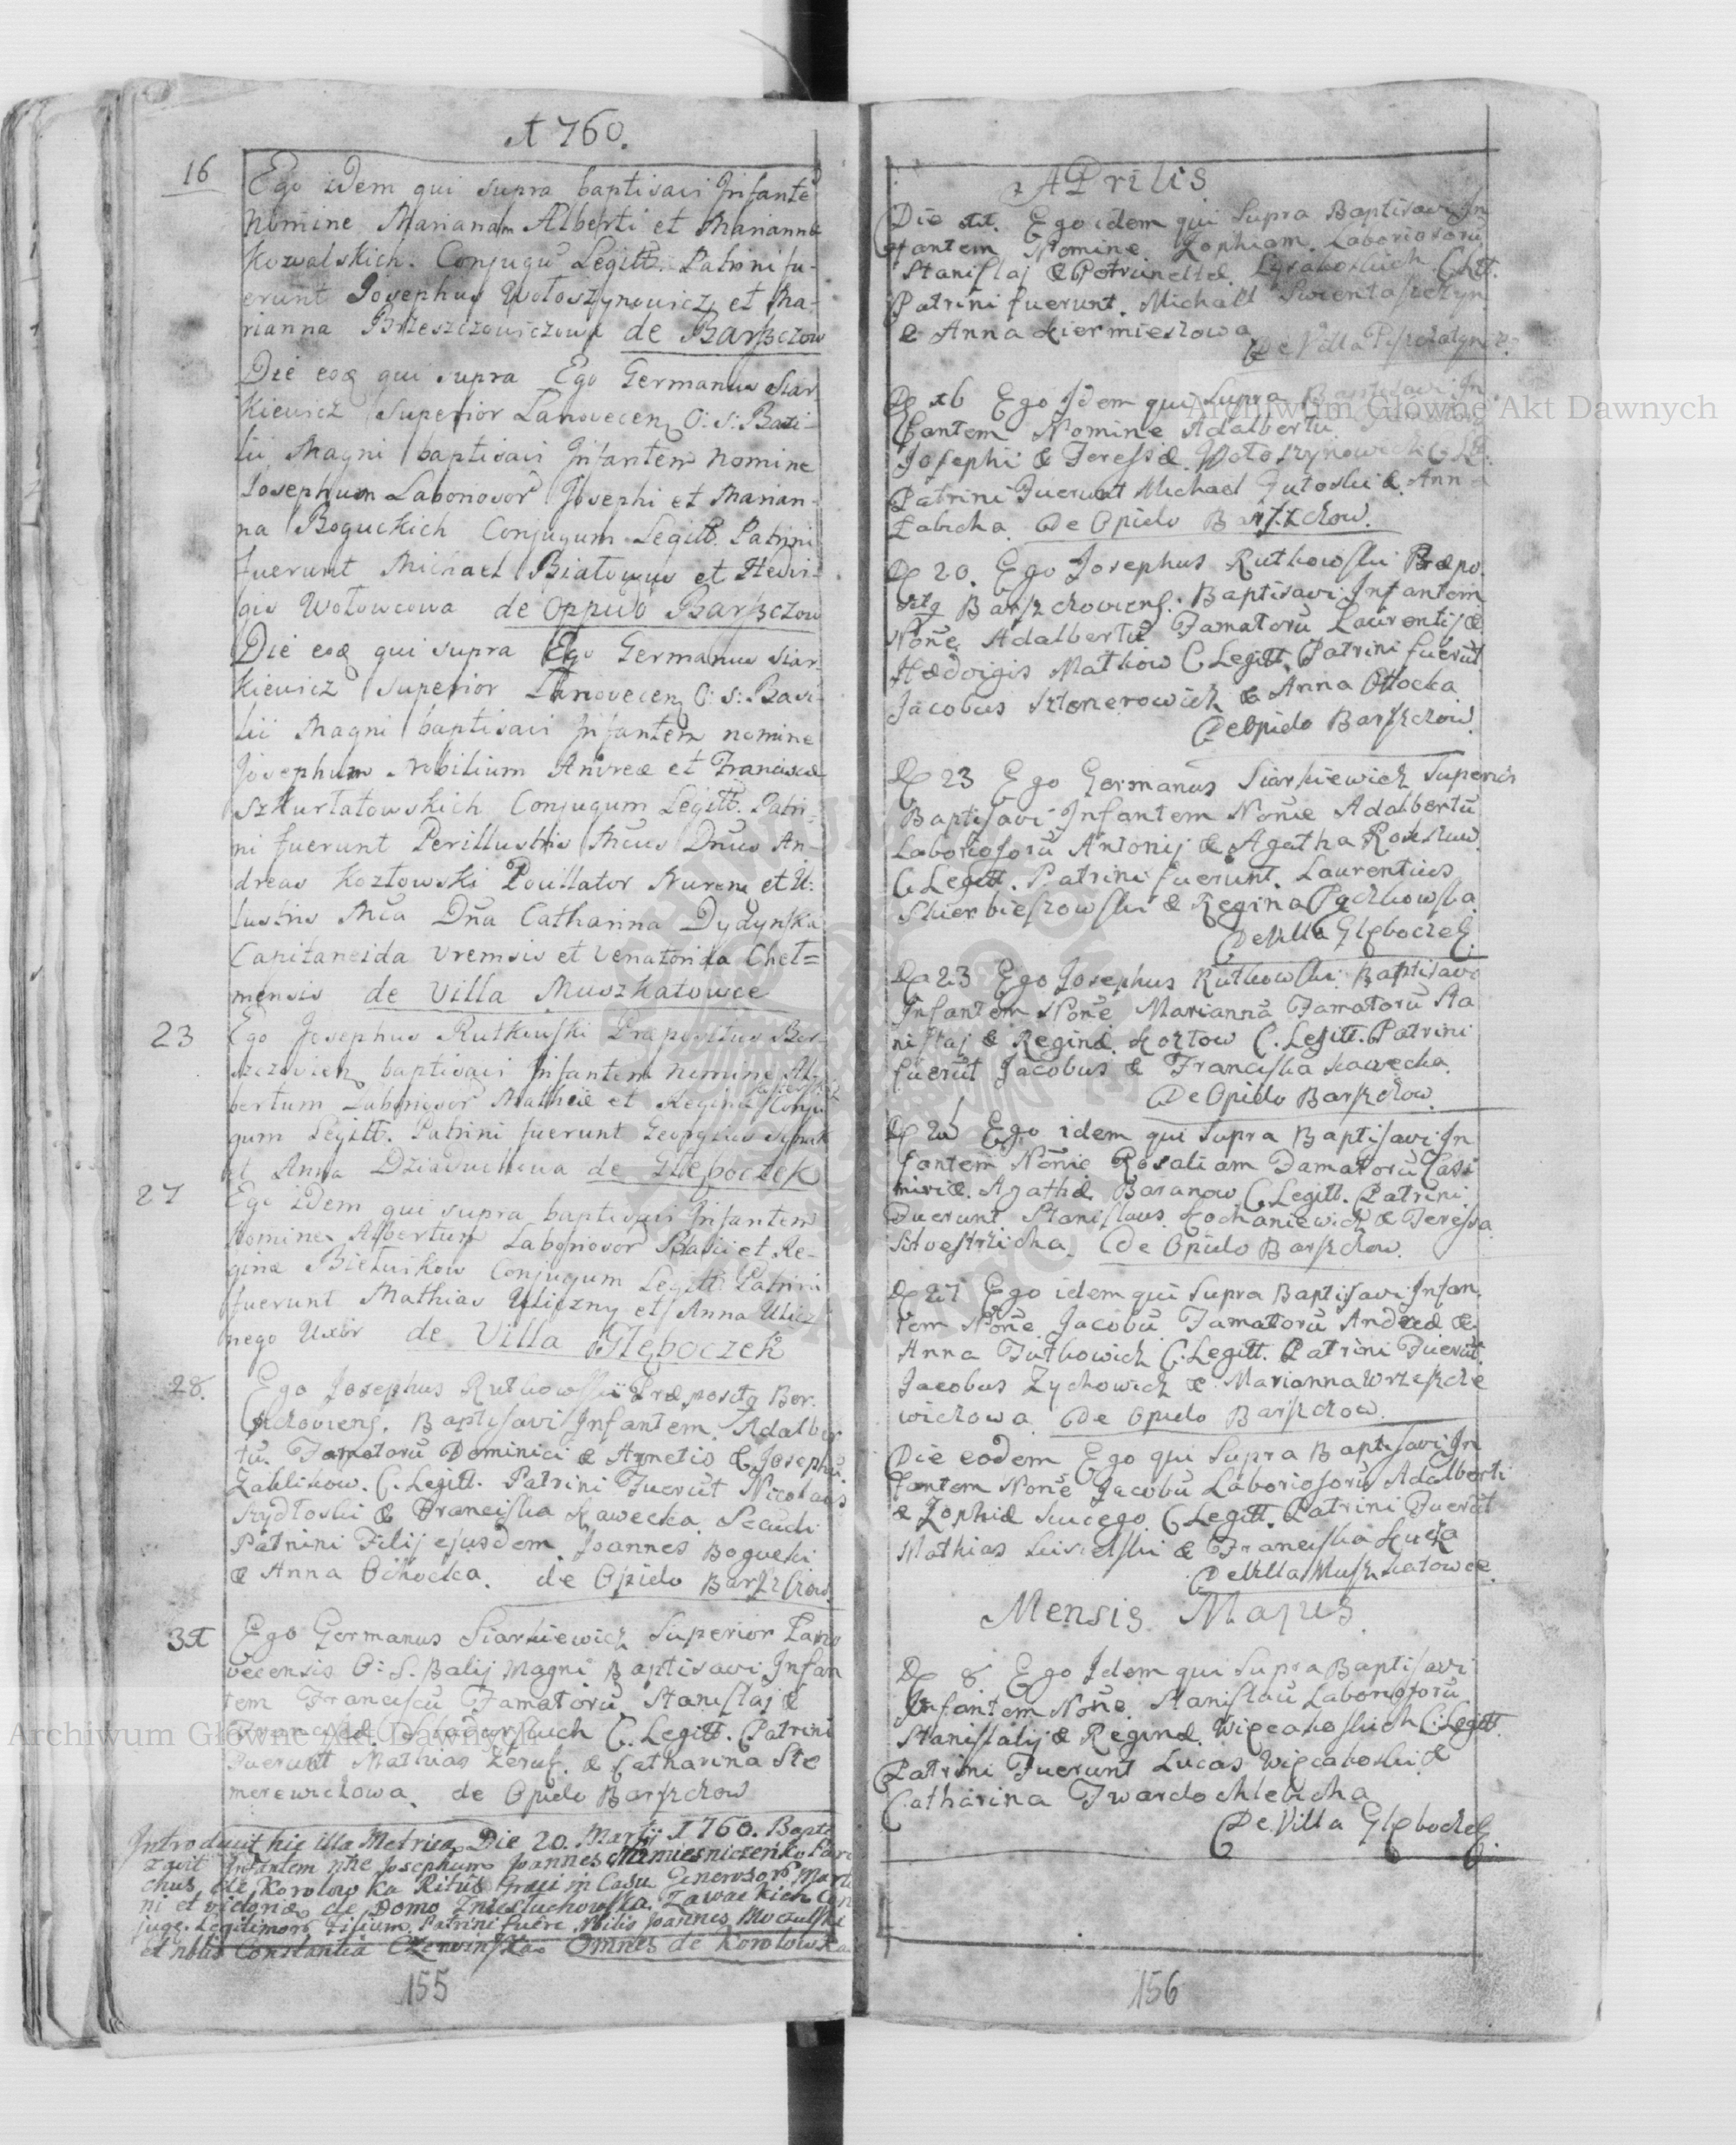 1760.
16 Ego idem qui supra baptisavi Infante
Nomine Mariannam Alberti et Marianna
Kowalskich. Conjugũ Legitt. Patrini fu-
erunt Josephus Wołoszynowicz et Ma-
rianna Brzeszczowiczowa de Barszczow
Die eođ qui supra Ego Germanus Siar-
kiewicz Superior Lanovecen O: S: Basi-
lii Magni baptisavi Infantem Nomine
Josephum Laboriosor Josephi et Marian-
na Boguckich Conjugum Legitt. Patrini
fuerunt Michael Białowus et Hedvi-
gis Wołowcowa de Oppido Barszczow
Die eođ qui supra Ego Germanus Siar-
kiewicz Superior Lanovecen O: S: Basi-
lii Magni baptisavi Infantem nomine
Josephum Nobilium Andreæ et Franciscæ
Szkurłatowskich Conjugum Legitt. Patri-
ni fuerunt Perillustris Mcus Dnus An-
dreas Kozłowski et Il-
lustris Mca Dna Catharina Dydynska
Capitaneida Vremsis et Venatorida Cheł=
mensis de Villa Muszkatowce
23 Ego Josephus Rutkowski Præpositus Bor-
szczovien baptisavi Infantem nomine Al-
bertum Laboriosor Mathiæ et Reginæ Conju
gum Legitt. Patrini fuerunt Georgius
et Anna Dziaduchowa de Głeboczek
27 Ego idem qui supra baptisavi Infantem
Nomine Albertum Laboriosor Blasii et Re-
ginæ Conjugum Legitt Patrini
fuerunt Mathias Uliczny et Anna Ulicz
nego Uxor de Villa Głęboczek
28. Ego Josephus Rutkowski Præposity Bor.
szchoviens. Baptisavi Infantem Adalber
tũ. Famatorũ Dominici & Agnetis & Josephũ
Zablikow. C. Legitt. Patrini Fuerũt Nicolaus
Szydłoski & Franciska Kawecka. Secudi
Patrini Filij ejusdem Joannes Bogucki
& Anna Ochocka. de Opido Barszchow.
31 Ego Germanus Siarkiewicz Superior Lano
vecensis O: S. Balij Magni Baptisavi Infan
tem Franciscũ Famatorũ Stanislaj &
Franciscæ C. Legitt. Patrini
Fuerunt Mathias & Catharina Ste
merewichowa. de Opido Barszchow
Introducit hic illa Metrica Die 20. Martij 1760. Bapti
zavit Infantem nñe Josephum Joannes Paro
chus de Korolowka Ritus Græci in Casu Generosor Marti
ni et Victoriæ de Domo Zawackich Con
juge. Legitimor Filium. Patrini fuere Nbilis Joannes Moczulski
et nblis Constantia Czerwinska Omnes de Korolowka
155
APrilis
Die 11. Ego idem qui Supra Baptisavi In
fantem Nomine Zophiam. Laboriosorũ
Stanislaj & Petrunellæ C. Ltt.
Patrini fuerunt. Michael
& Anna Kiermieszowa
De Villa
D 16 Ego Idem qui Supra Baptisavi In
fantem Nomine Adalbertũ
Josephi & Teressæ Wołoszynowich C. L.
Patrini Fuerunt Michael Gutoski & Anna
Łabicka. De Opido Barszchow.
D 20. Ego Josephus Rutkowski Præpo
sity Barszchoviens. Baptisavi Infantem
Noñe Adalbertũ Famatorũ Laurentij &
Hædvigis Matkow C. Legitt. Patrini fuerũt
Jacobus Szlonerowich & Anna Ottocka
De Opido Barszchow
D 23 Ego Germanus Siarkiewich Superior
Baptisavi Infantem Noñe Adalbertũ
Laboriosorũ Antonij & Agatha
C Legitt. Patrini fuerunt. Laurentius
Skierbieszowski & Regina
De Villa Głębochek.
D 23 Ego Josephus Rutkowski Baptisavi
Infantem Noñe Mariannã Famatorũ Sta
nislaj & Reginæ Kozłow C. Legitt. Patrini
fuerũt Jacobus & Franciska Kawecka.
De Opido Barszchow.
D 25 Ego idem qui Supra Baptisavi In
fantem Noñie Rosaliam Famatorũ Casi
miri & Agathæ Baranow C Legitt. Patrini
Fuerunt Stanislaus Kochaniewich & Teressa
Silvestrzicha. De Opido Barszchow.
D 27 Ego idem qui Supra Baptisavi Infan
tem Noñe Jacobũ Famatorũ Andreæ &
Anna Futkowich C. Legitt. Patrini Fuerũt
Jacobus Zychowich & Marianna Wrzeszche
wichowa De Opido Barszchow
Die eodem Ego qui Supra Baptisavi In
fantem Noñe Jacobũ Laboriosorũ Adalberti
& Zophiæ C Legitt. Patrini Fuerũt
Mathias & Franciska
De Villa Muszkatowce.
Mensis Majus
D 8 Ego Idem qui Supra Baptisavi
Infantem Noñe. Stanislaũ Laboriosorũ
Stanislaij & Reginæ Więcakoskich C Legitt.
Patrini Fuerunt Lucas Więcakoski &
Catharina Twardochlebicha
De Villa Głębochek.
156
Archiwum Główne Akt Dawnych
Archiwum Główne Akt Dawnych